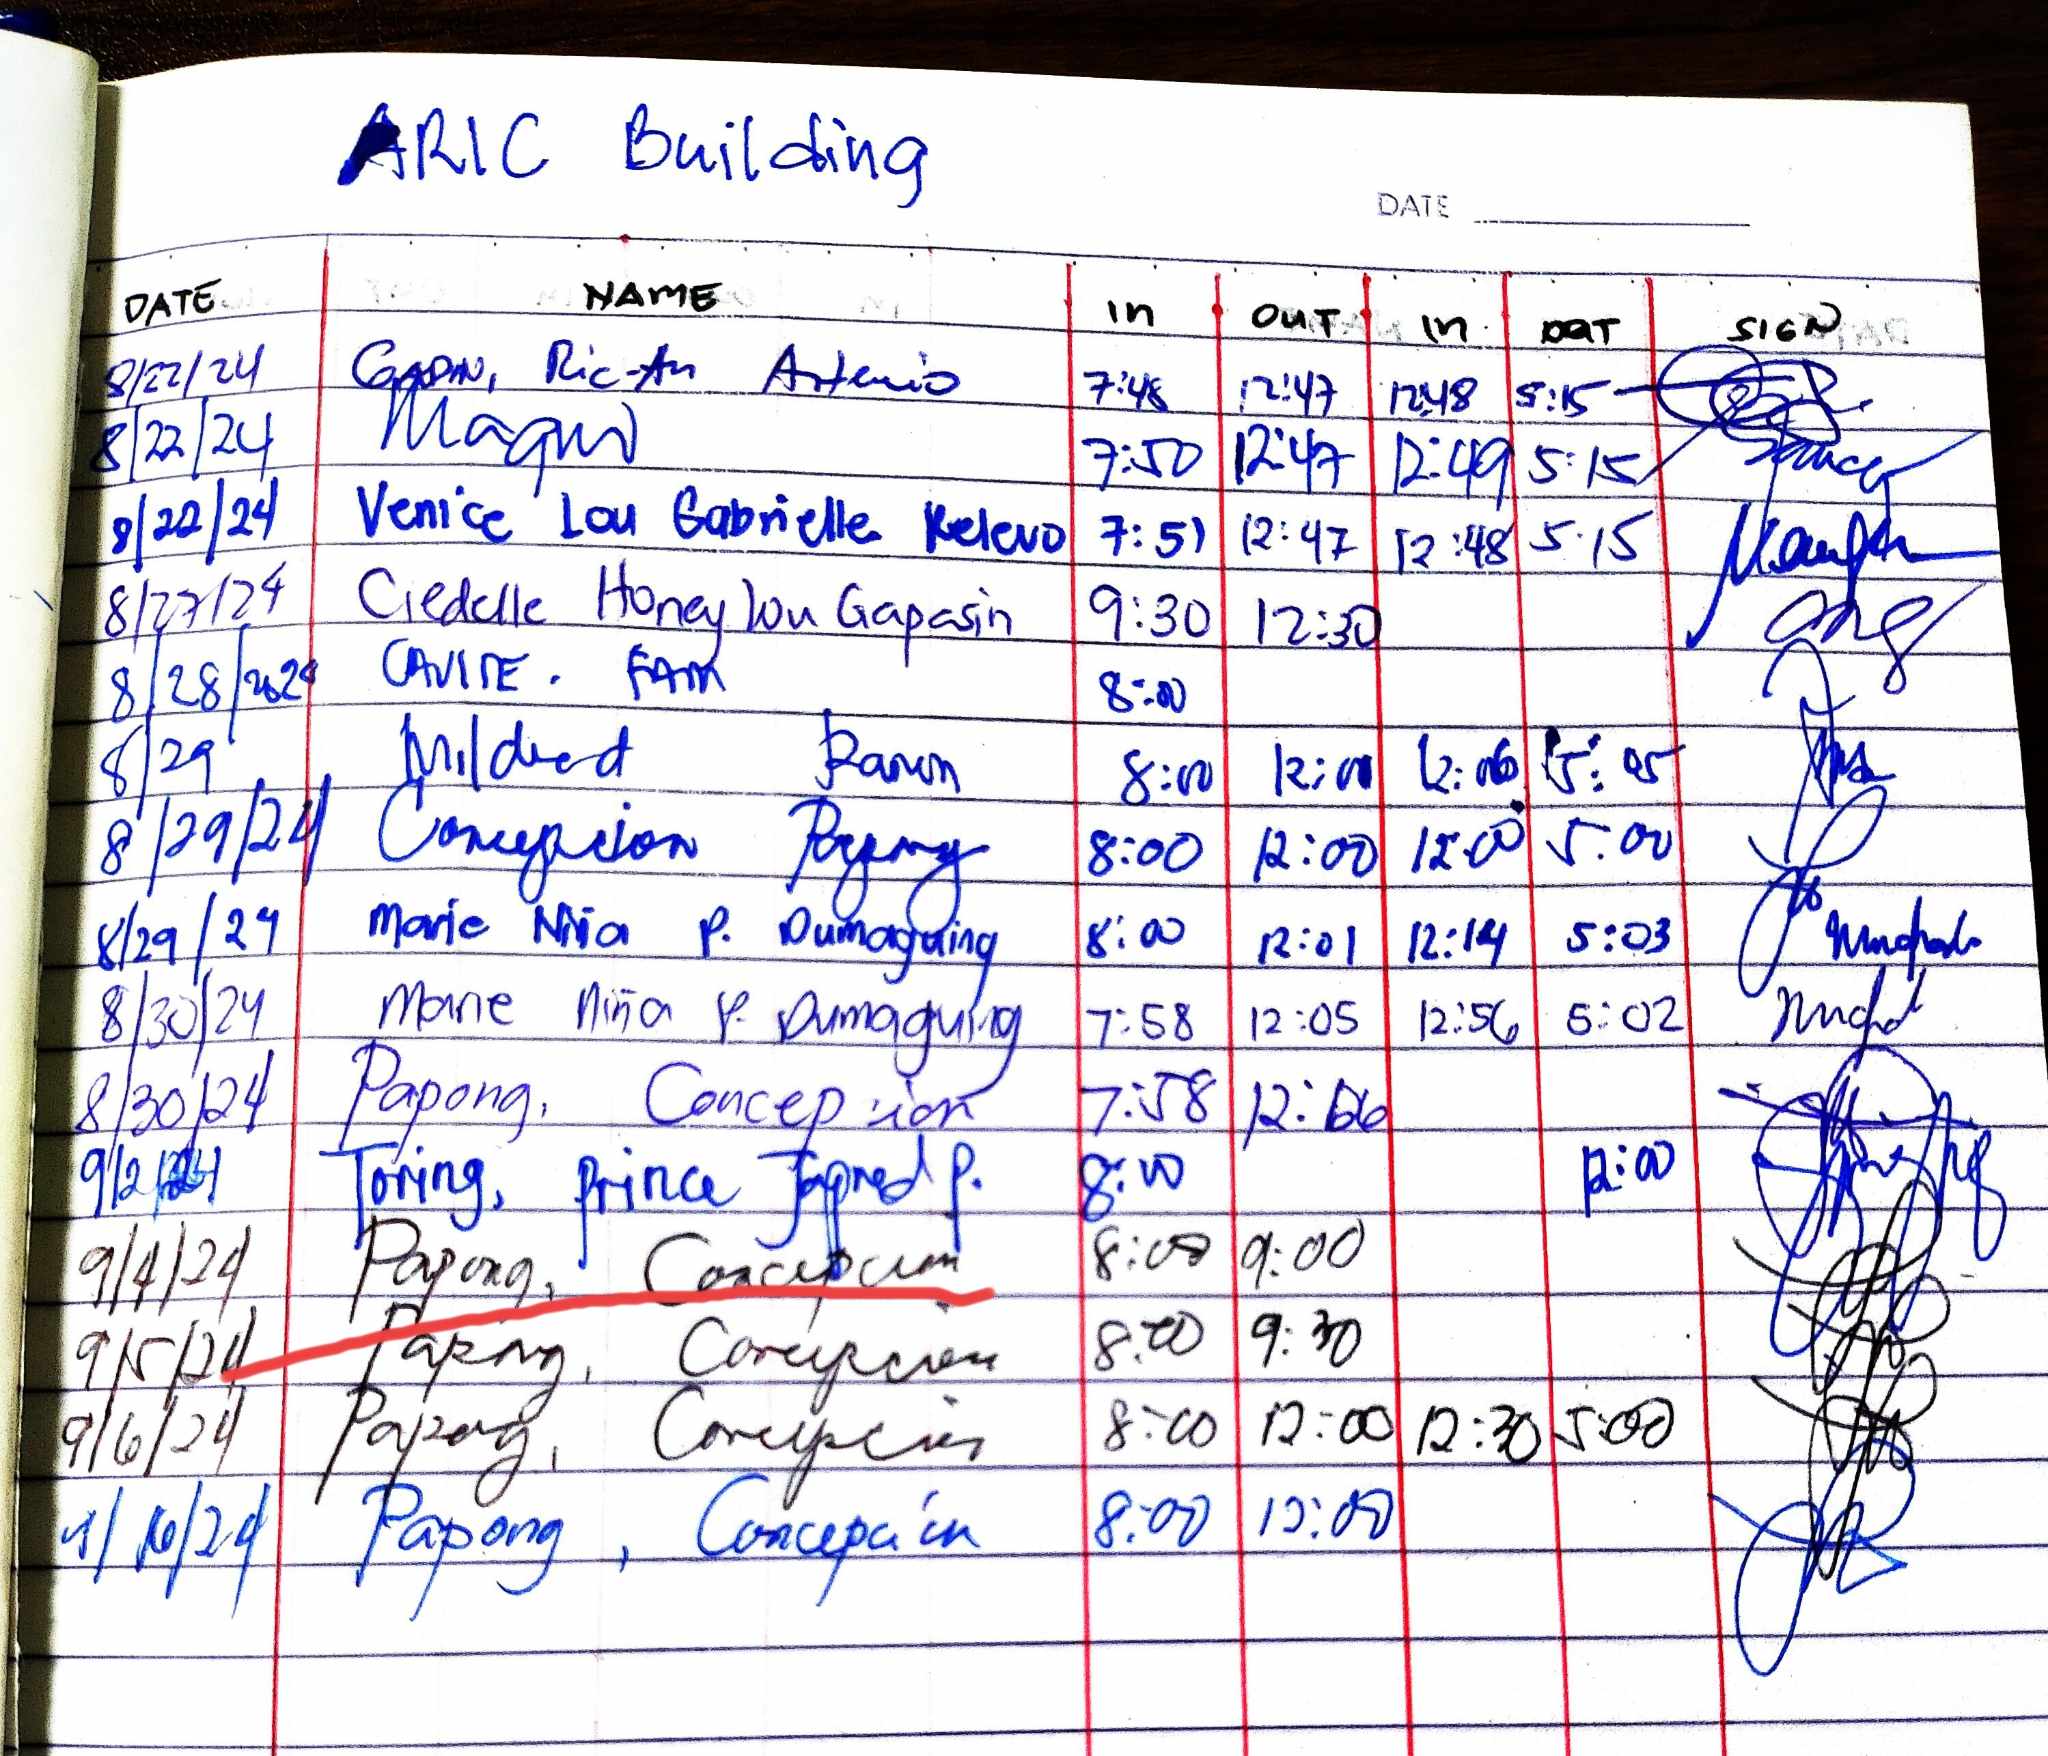 ARIC Building
DATE
DATE NAME In OUT In OUT SIGN
8/22/24 Ric-An Artenio 7:48 12:47 12:48 5:15
8/22/24 7:50 12:47 12:49 5:15
8/22/24 Venice Lou Gabrielle Relevo 7:51 12:47 12:48 5:15
8/27/24 Ciedelle Honeylou Gapasin 9:30 12:30
8/28/2024 CAVITE. FAM 8:00
8/29 Mildred 8:00 12:00 12:06 5:05
8/29/24 Concepcion Papong 8:00 12:00 12:00 5:00
8/29/24 Marie Niña P. Dumaguing 8:00 12:01 12:14 5:03
8/30/24 Marie Niña P. Dumaguing 7:58 12:05 12:56 5:02
8/30/24 Papong, Concepcion 7:58
9/2/24 Toring, Prince Japred P. 8:00 12:00
9/4/24 Papong, Concepcion 8:00 9:00
9/5/24 Papong, Concepcion 8:00 9:30
9/6/24 Papong, Concepcion 8:00 12:00 12:30 5:00
Papong, Concepcion 8:00 12:00